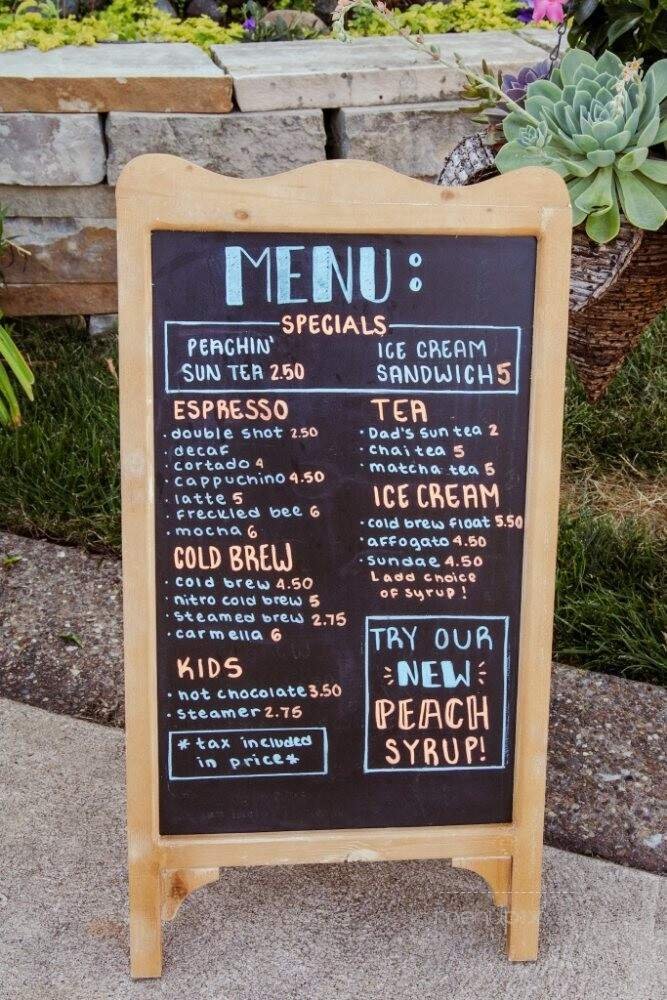 MENU:
SPECIALS
PEACHIN'
SUN TEA 2.50
ICE CREAM
SANDWICH 5
ESPRESSO
· double shot 2.50
· decaf
· cortado 4
· cappuchino 4.50
· latte 5
· freckled bee 6
· mocha 6
COLD BREW
· cold brew 4.50
· nitro cold brew 5
· steamed brew 2.75
· carmella 6
KIDS
· hot chocolate 3.50
· steamer 2.75
*tax included
in price*
TEA
· Dad's sun tea 2
· chai tea 5
· matcha tea 5
ICE CREAM
· cold brew float 5.50
· affogato 4.50
· sundae 4.50
add choice
of syrup!
TRY OUR
NEW
PEACH
SYRUP!
menupix